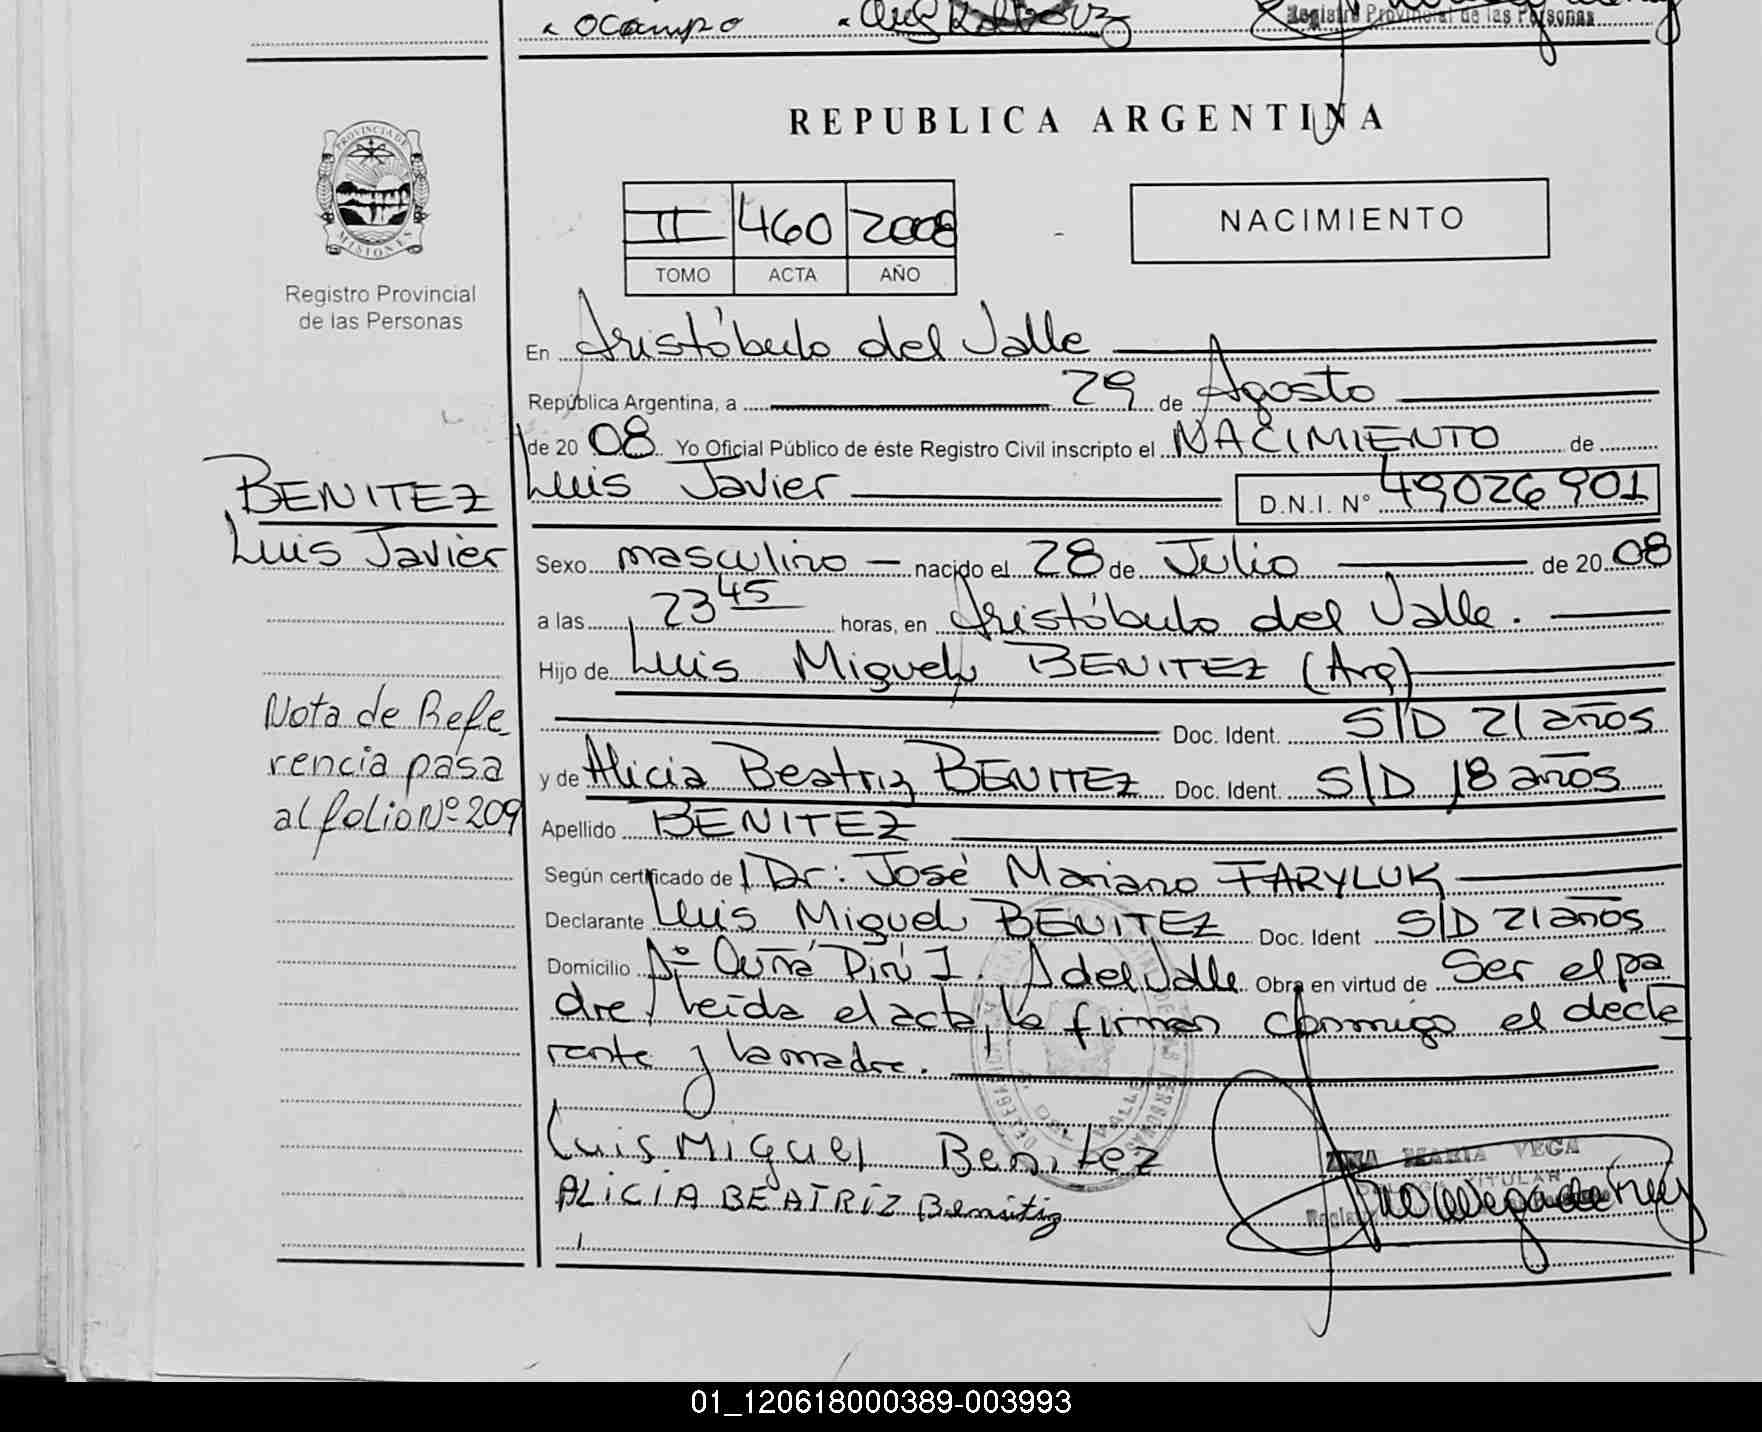 " Ocampo "
Registro Provincial de las Personas
PROVINCIA DE
MISIONES
Registro Provincial
de las Personas
REPUBLICA ARGENTINA
II 460 2008
TOMO ACTA AÑO
NACIMIENTO
En Aristóbulo del Valle
República Argentina, a 29 de Agosto
de 20 08 Yo Oficial Público de éste Registro Civil inscripto el NACIMIENTO de
Luis Javier D.N.I. Nº 49026901
BENITEZ
Luis Javier
Sexo masculino nacido el 28 de Julio de 20 08
a las 23 45 horas, en Aristóbulo del Valle.
Hijo de Luis Miguel BENITEZ (Arg)
Doc. Ident. S/D 21 años
y de Alicia Beatriz BENITEZ Doc. Ident. S/D 18 años
Nota de Refe
rencia pasa
al folio Nº 209
Apellido BENITEZ
Según certificado de Dr: José Mariano FARYLUK
Declarante Luis Miguel BENITEZ Doc. Ident S/D 21 años
Domicilio Aº Cuña Pirú I. A del Valle Obra en virtud de Ser el pa
dre, leída el acta, la firman conmigo el decla
rante y la madre.
DEL VALLE
Luis Miguel Benitez
ALICIA BEATRIZ Benitiz
MARIA VEGA
TITULAR
01_120618000389-003993